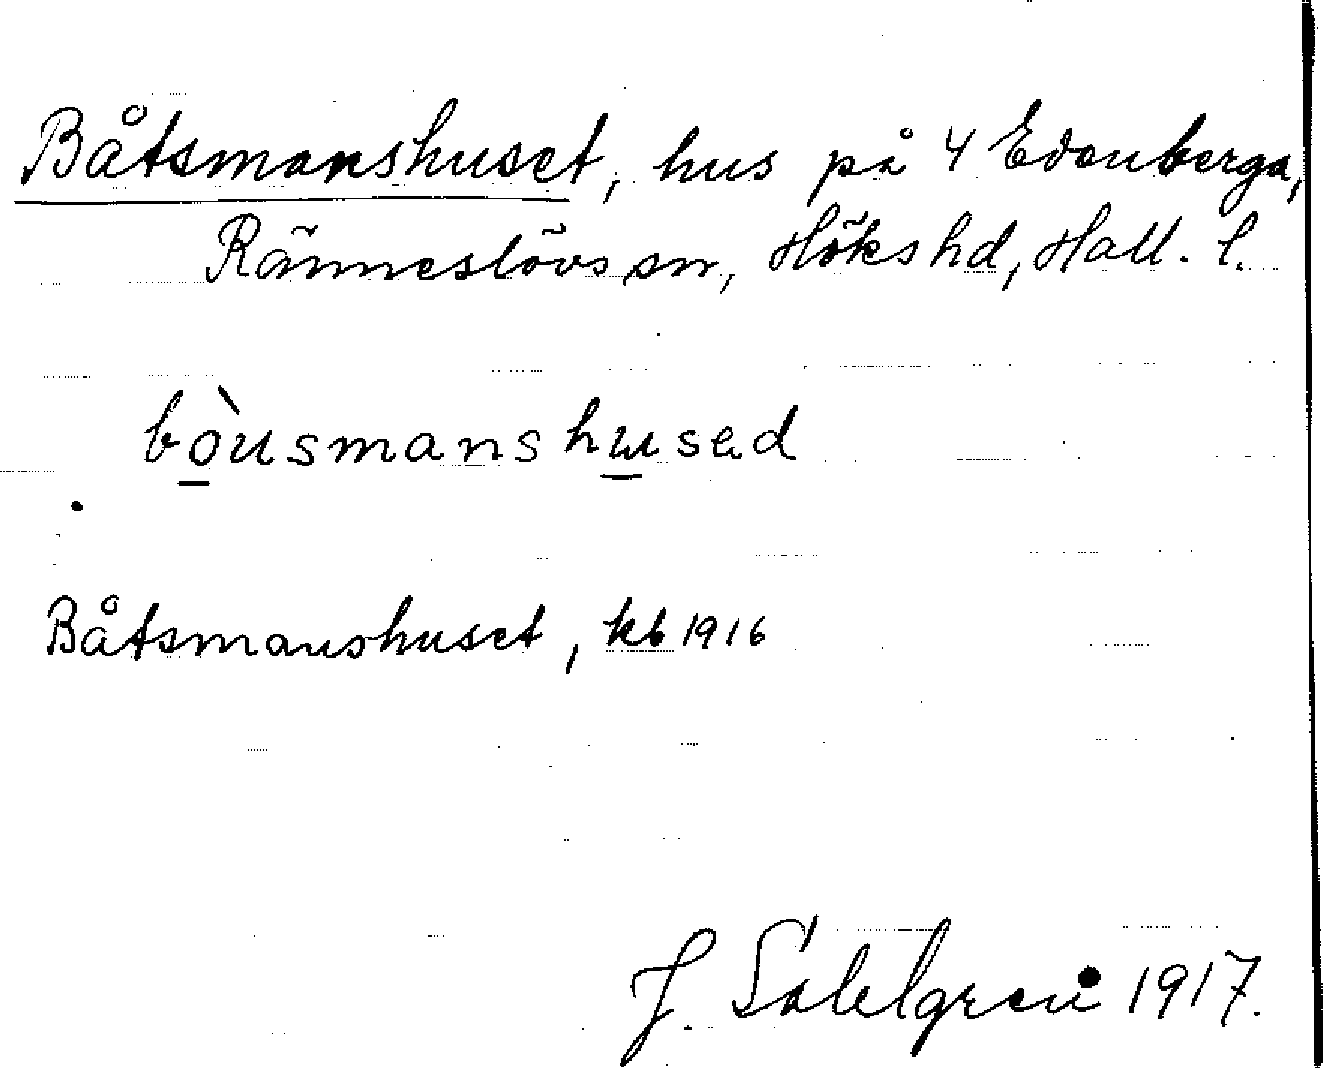 Båtsmanshuset, hus på 4 Edenberga,
Ränneslövs sn, Höks hd, Hall. l.
bòusmanshusad
Båtsmanshuset, kb 1916
J. Sahlgren 1917.